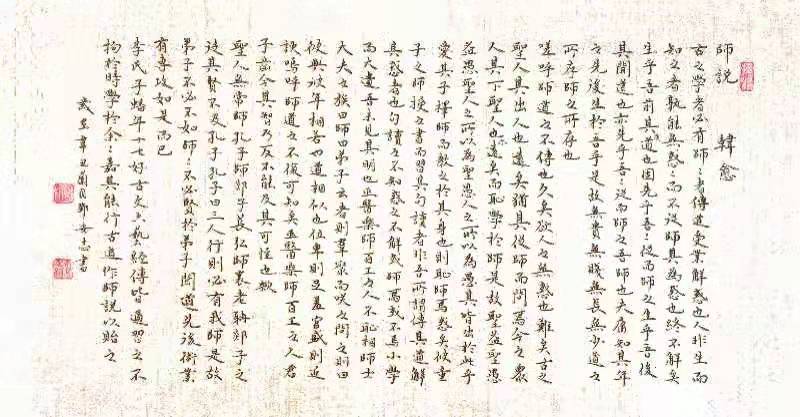 師說　韓愈
古之學者必有師々者傳道受業解惑也人非生而
知之者孰能無惑々而不從師其為惑也終不解矣
生乎吾前其道也固先乎吾々從而師之生乎吾後
其聞道也亦先乎吾々從而師之吾師也夫庸知其年
之先後生於吾乎是故無貴無賤無長無少道之
所存師之所存也
嗟呼師道之不傳也久矣欲人之無惑也難矣古之
聖人其出人也遠矣猶且從師而問焉今之眾
人其下聖人也遠矣而恥學於師是故聖益聖愚
益愚聖人之所以為聖愚人之所以為愚其皆出於此乎
愛其子擇師而教之於其身也則恥師焉惑矣彼童
子之師授之書而習其句讀者非吾所謂傳其道解
其惑者也句讀之不知惑之不解或師焉或不焉小學
而大遺吾未見其明也巫醫樂師百工之人不恥相師士
大夫之族曰師曰弟子云者則羣聚而笑之問之則曰
彼與彼年相若也道相似也位卑則足羞官盛則近
諛嗚呼師道之不復可知矣巫醫樂師百工之人君
子今其智乃反不能及其可怪也歟
聖人無常師孔子師郯子萇弘師襄老聃郯子之
徒其賢不及孔子孔子曰三人行則必有我師是故
弟子不必不如師々不必賢於弟子聞道先後術業
有專攻如是而已
李氏子蟠年十七好古文六藝經傳皆通習之不
拘於時學於余々嘉其能行古道作師說以貽之
歲在辛丑蘭月鄧志書